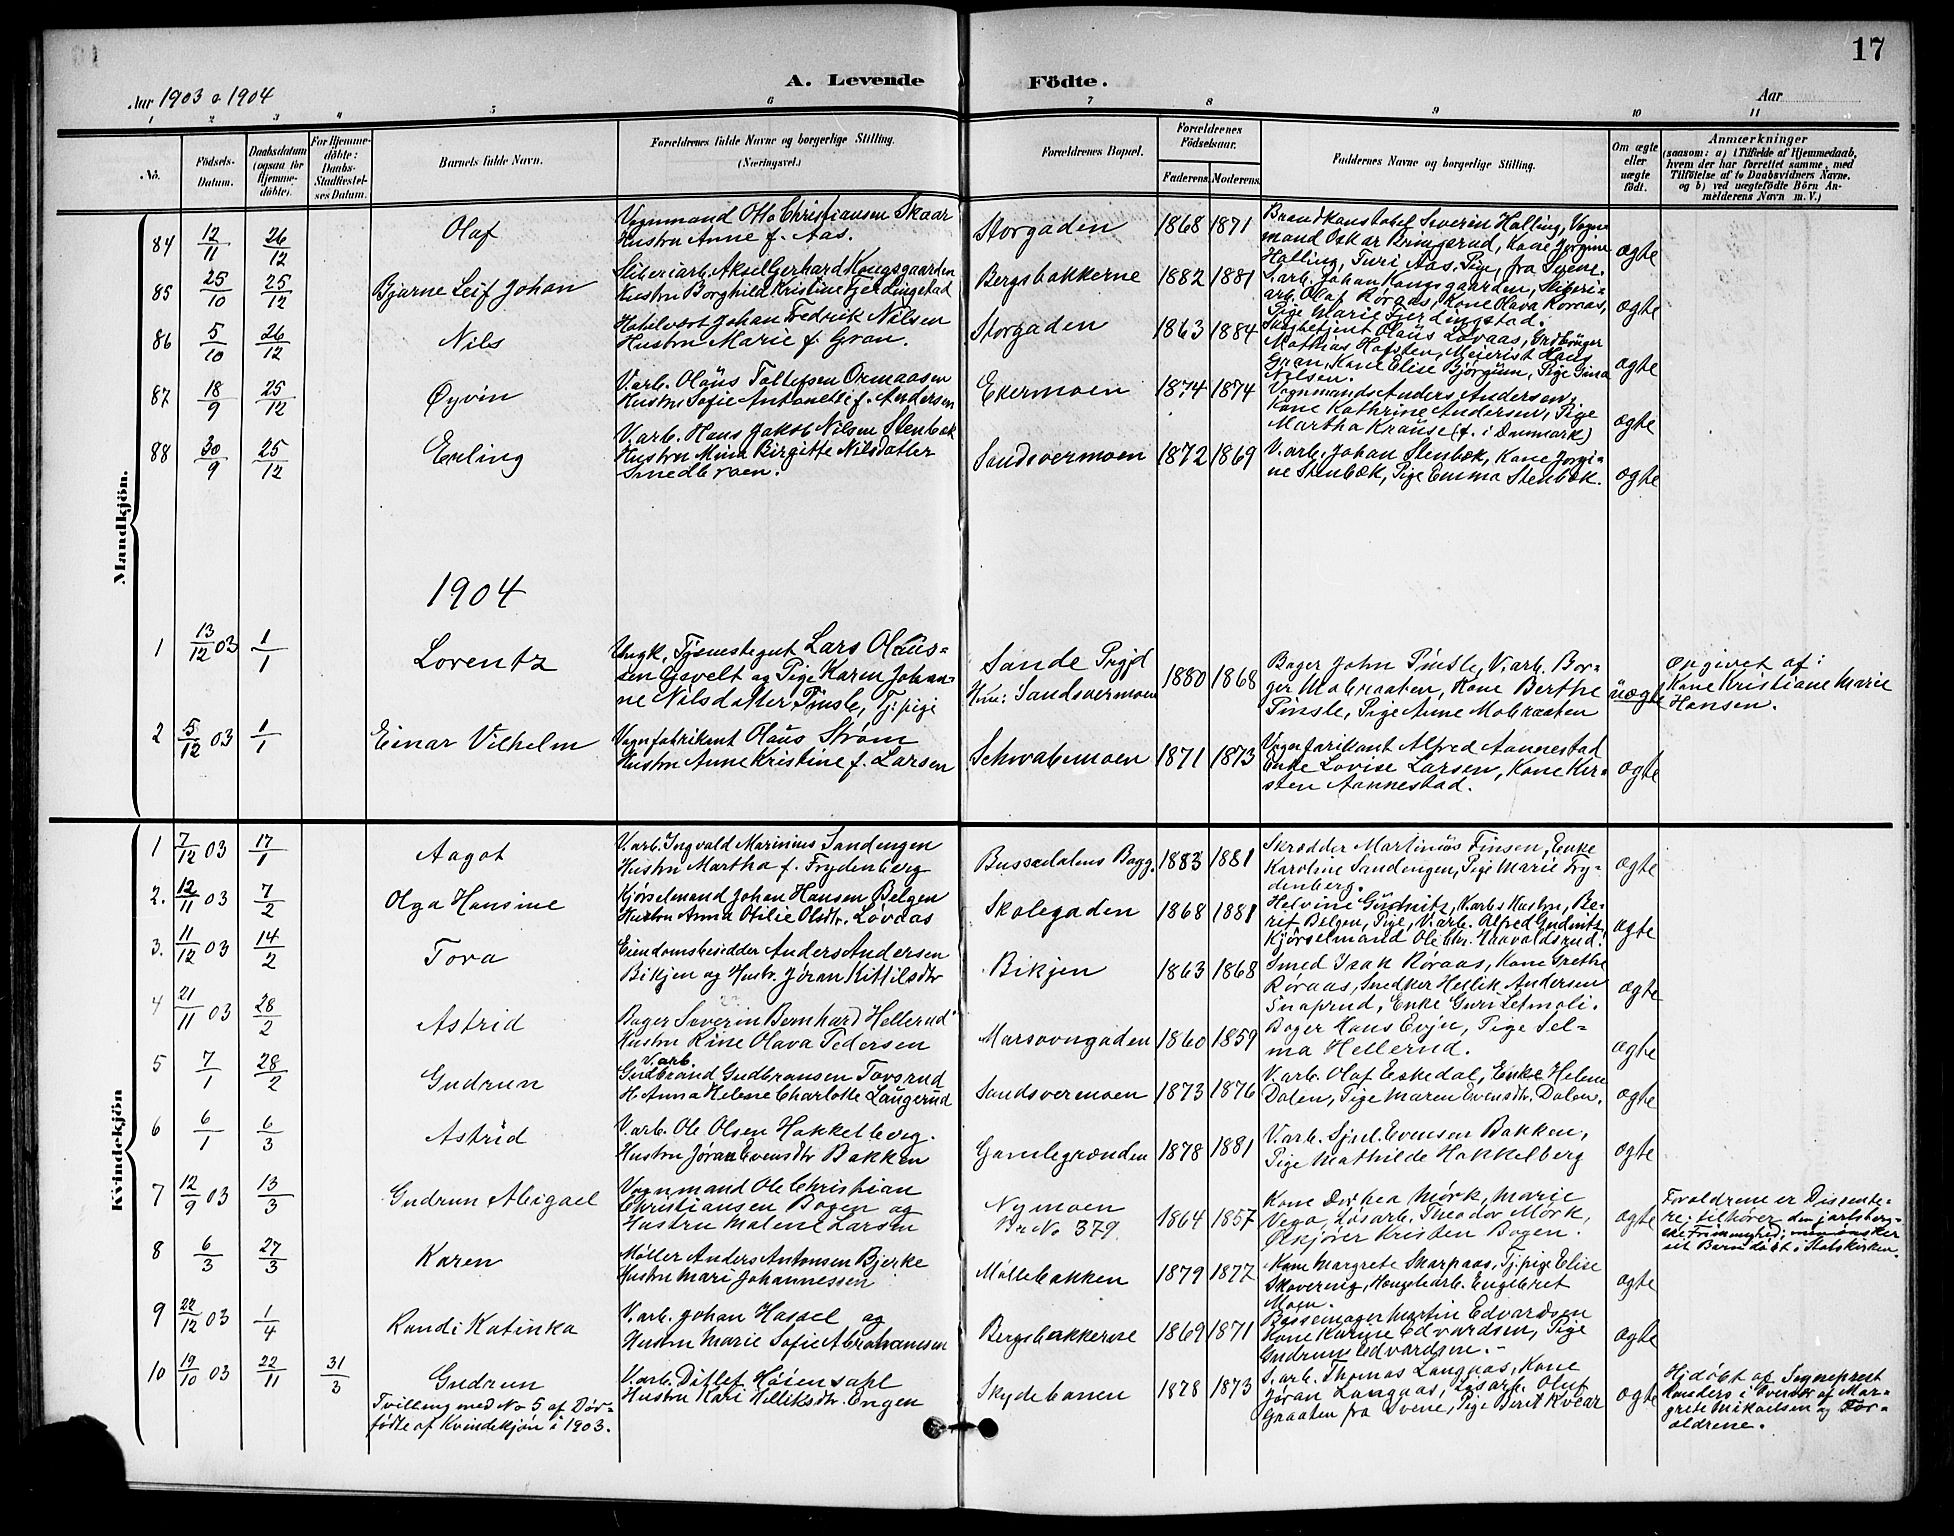 17
A. Levende Födte.
Aar 1903 o 1904
Aar
1 2 3 4 5 6 7 8 9 10 11
No.
Födsels-
Datum.
Daabsdatum
(ogsaa for
Hjemme-
döbte).
For Hjemme-
döbte:
Daabs-
Stadfæstel-
ses Datum.
Barnets fulde Navn.
Forældrenes fulde Navne og borgerlige Stilling.
(Næringsvei.)
Forældrenes Bopæl.
Forældrenes
Födselsaar.
Faderens. Moderens.
Faddernes Navne og borgerlige Stilling.
Om ægte
eller
uægte
födt.
Anmærkninger
(saasom: a) i Tilfælde af Hjemmedaab,
hvem der har forrettet samme, med
Tilföielse af to Daabsvidners Navne,
og b) ved uægtefödte Börn An-
melderens Navn m. V.)
Mandkjön.
84 12/11 26/12 Olaf
Vognmand Otto Christiansen Skaar
Hustru Anne f. Aas.
Storgaden 1868 1871
Brandkonstabel Severin Halling, Vogn-
mand Oskar Bringerud, Kone Jørgine
Halling, Turi Aas, Pige, fra Svene.
ægte
85 25/10 25/12 Bjarne Leif Johan
Sliberiarb. Aksel Gerhard Kongsgaarden
Hustru Borghild Kristine Gjerdingstad
Bergsbakkerne 1882 1881
V.arb. Johan Kongsgaarden, Sliberi-
arb. Olaf Roraas, Kone Olava Roraas,
Pige Marie Gjerdingstad.
ægte
86 5/10 26/12 Nils
Hotelvært Johan Fredrik Nilsen
Hustru Marie f. Gran.
Storgaden 1863 1884
Olaus Lovaas, Grdbruger
Mathias Hofsten, Meierist Hans
Gran, Kone Elise Bjørgum, Pige Gina
Nilsen.
ægte
87 18/9 25/12 Øyvin
V.arb. Olaus Tollefsen Ormaasen
Hustru Sofie Antonette f. Andersen
Ekermoen 1874 1874
Vognmand Anders Andersen,
Kone Kathrine Andersen, Pige
Martha Krause (f. i Danmark)
ægte
88 30/9 25/12 Erling
V.arb. Hans Jakob Nilsen Stenbæk
Hustru Mina Birgitte Nilsdatter
Smedbroen.
Sandsvermoen 1872 1869
V.arb. Johan Stenbæk, Kone Jorgi-
ne Stenbæk, Pige Emma Stenbæk.
ægte
1904
1 13/12 03 1/1 Lorentz
Ungk. Tjenestegut Lars Olaus-
sen Gjavelt og Pige Karen Johan-
ne Nilsdatter Tinsle, Tj.pige
Sande Prgjd
Hun: Sandsvermoen
1880 1868
Bager John Tinsle, V.arb. Bor-
ger Mobraaten, Kone Berthe
Tinsle, Pige Anne Mobraaten
uægte
Opgivet af:
Kone Kristiane Marie
Hansen.
2 5/12 03 1/1 Einar Vilhelm
Vognfabrikant Olaus Strøm
Hustru Anne Kristine f. Larsen
Schwabemoen 1871 1873
Vognfarikant Alfred Aannestad
Enke Lovise Larsen, Kone Kir-
sten Aannestad.
ægte
Kvindekjön
1 7/12 03 17/1 Aagot
V.arb. Ingvald Marinius Sandengen
Hustru Martha f. Frydenberg
Bussedalens Bogg. 1883 1881
Skrædder Martinius Finsen, Enke
Karoline Sandengen, Pige Marie Fry-
denberg.
ægte
2. 12/11 03 7/2 Olga Hansine
Kjørselmand Johan Hansen Belgen
Hustru Anna Otilie Olsdtr. Lovaas
Skolegaden 1868 1881
Helvine Gudnitz, V.arbs Hustru, Be-
rit Belgen, Pige, V.arb. Alfred Gudnitz,
Kjørselmand Ole Chr. Haavaldsrud.
ægte
3. 11/12 03 14/2 Tora
Eiendomsbesidder Anders Andersen
Bikjen og Hustr. Jøran Kittilsdtr
Bikjen 1863 1868
Smed Isak Røraas, Kone Grethe
Røraas, Snedker Hellik Andersen
Snaprud, Enke Guri Setmoli.
ægte
4 21/11 03 28/2 Astrid
Bager Severin Bernhard Hellerud
Hustru Rine Olava Pedersen
Marsovngaden 1860 1859
Bager Hans Evju, Pige Sel-
ma Hellerud.
ægte
5 7/1 28/2 Gudrun
V.arb
Gudbrand Gudbransen Tovsrud
H. Anna Helene Charlotte Laugerud
Sandsvermoen 1873 1876
V.arb. Olaf Eskedal, Enke Helene
Dalen, Pige Maren Evensdtr. Dalen.
ægte
6 6/1 6/3 Astrid
V.arb. Ole Olsen Hakkelberg.
Hustru Jøran Evensdtr Bakken
Gamlegrænden 1878 1881
V.arb. Sjul. Evensen Bakken,
Pige Mathilde Hakkelberg
ægte
7 12/9 03 13/3 Gudrun Abigael
Vognmand Ole Christian
Christiansen Bogen og
Hustru Malene Larsen
Nymoen
Br. No 379.
1864 1857
Kone Dorthea Mörk, Marie
Vego, Løsarb. Theodor Mörk,
Ølkjører Kristen Bogen.
ægte
Forældrene er Dissente-
re; tilhører den jarlsberg-
ske Frimenighed; men ønsker
sit Barn døbt i Statskirken.
8 6/3 27/3 Karen
Møller Anders Antonsen Bjerke
Hustru Mari Johannessen
Møllebakken 1879 1877
Kone Margrete Skarpaas, Tj.pige Elise
Skovereng, Engebret
Moen.
ægte
9 22/12 03 1/4 Randi Katinka
V.arb. Johan Hassel og
Hustru Marie Sofie Abrahamsen
Bergsbakkerne 1869 1871
Bøssemager Martin Edvardsen
Kone Karine Edvardsen, Pige
Gudrun Edvardsen.
ægte
10 19/10 03 22/11 31/3 Gudrun
Tvilling med No 5 af Død-
fødte af Kvindekjön i 1903.
V.arb. Ditlef Høiensahl
Hustru Kari Helliksdtr. Engen
Skydebanen 1878 1873
S.arb. Thomas Langaas, Kone
Jøran Langaas, Løsarb. Oluf
Graaten fra Svene, Pige Berit Kvear
ægte
Hjdøbt af Sogneprest
Honders i Overvær af Mar-
grete Mikaelsen og For-
ældrene.